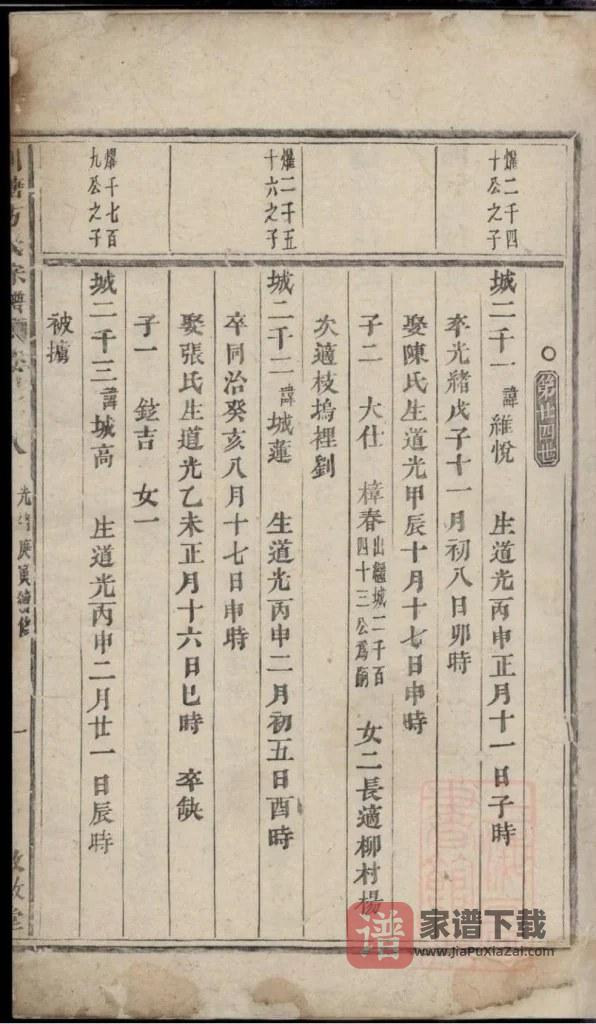 第廿四世
燦二千四
十公之子
城二千一 諱維悅 生道光丙申正月十一日子時
卒光緒戊子十一月初八日卯時
娶陳氏生道光甲辰十月十七日申時
子二 大仕 樟春 出繼城二千百四十三公為嗣 女二長適柳村楊
次適枝塢裡劉
燦二千五
十六之子
城二千二 諱城蓮 生道光丙申二月初五日酉時
卒同治癸亥八月十七日申時
娶張氏生道光乙未正月十六日巳時 卒缺
子一 鈙吉 女一
燦千七百
九公之子
城二千三 諱城高 生道光丙申二月廿一日辰時
被擄
宗譜
八
光緒庚寅
一
谱 家谱下载
www.JiaPuXiaZai.com